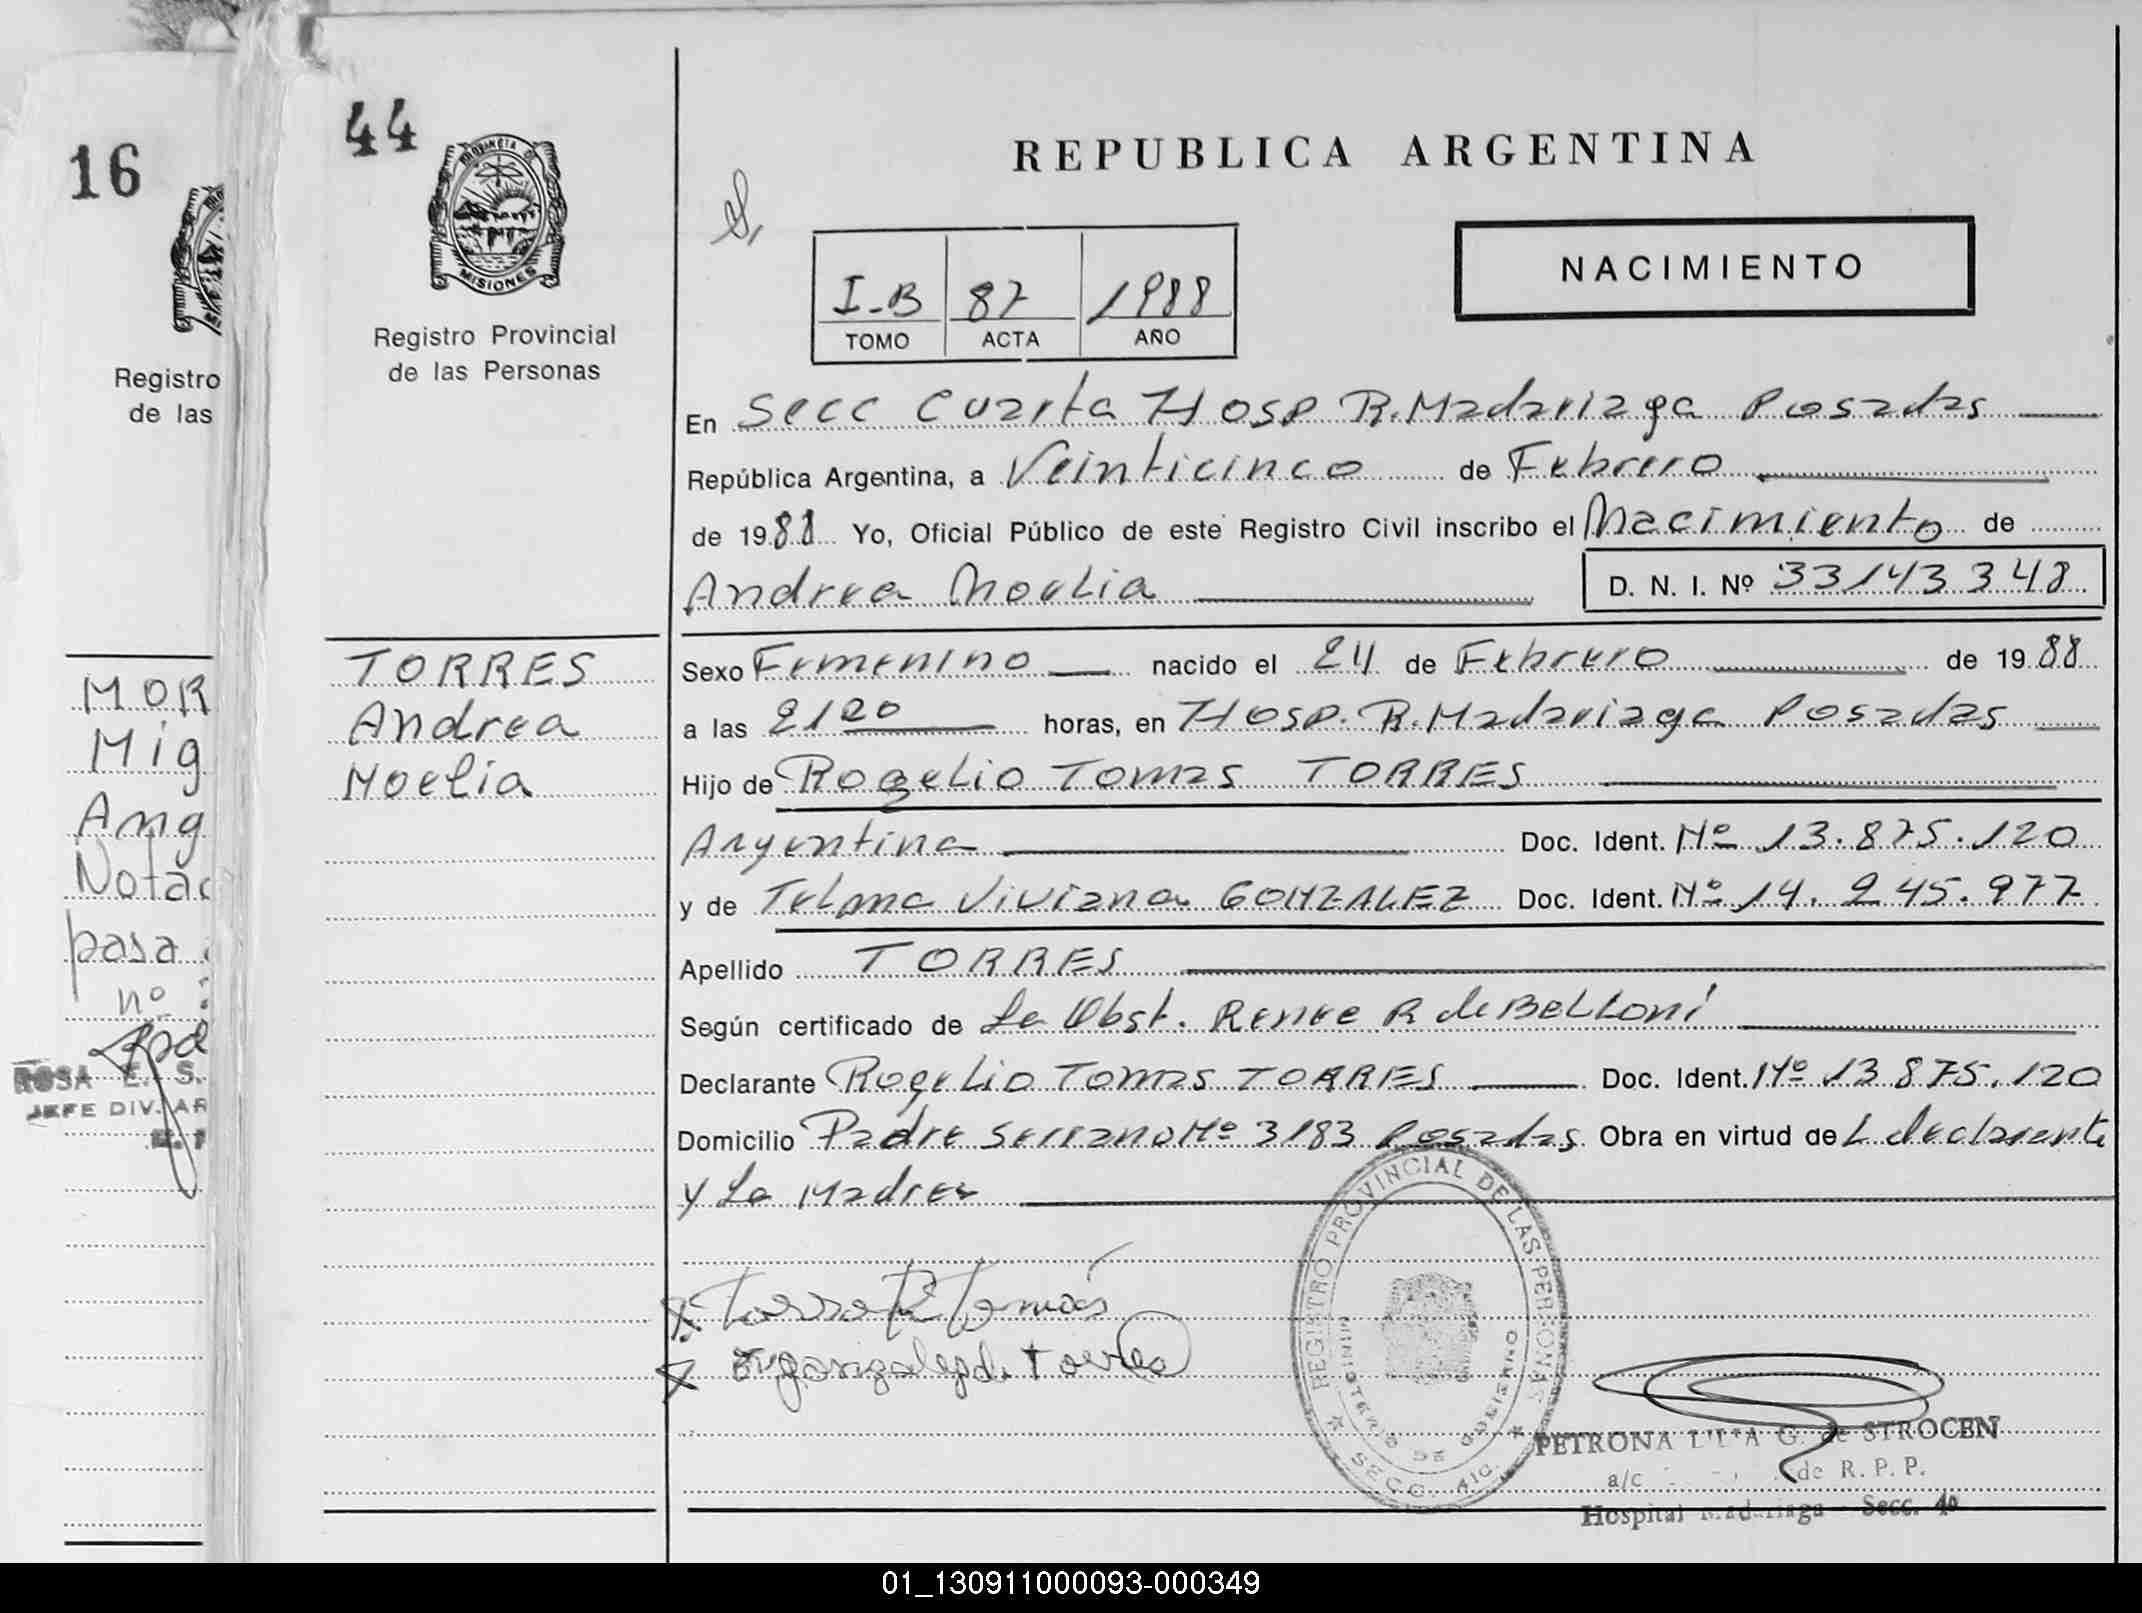 16
Registro
de las
MOR
Mig
Ang
Notac
pasa
nº
ROSA E. S.
JEFE DIV. AR
44
PROVINCIA DE
MISIONES
Registro Provincial
de las Personas
TORRES
Andrea
Noelia
REPUBLICA ARGENTINA
NACIMIENTO
I-B 87 1988
TOMO ACTA AÑO
En Secc Cuarta Hosp R. Madariaga Posadas
República Argentina, a Veinticinco de Febrero
de 1988 Yo, Oficial Público de este Registro Civil inscribo el Nacimiento de
Andrea Noelia D. N. I. Nº 33143348
Sexo Femenino nacido el 24 de Febrero de 1988
a las 2120 horas, en Hosp. R. Madariaga Posadas
Hijo de Rogelio Tomas TORRES
Argentina Doc. Ident. Nº 13.875.120
y de Telma Viviana GONZALEZ Doc. Ident. Nº 14.245.977
Apellido TORRES
Según certificado de La Obst. Renee R de Belloni
Declarante Rogelio Tomas TORRES Doc. Ident. Nº 13875.120
Domicilio Padre Serrano Nº 3183 Posadas. Obra en virtud de L declarante
y La Madre
Torres R Tomás
T.V. gonzalez de Torres
REGISTRO PROVINCIAL DE LAS PERSONAS
MINISTERIO DE GOBIERNO
SECC. 4ta.
PETRONA G. de STROCEN
a/c de R. P. P.
Hospital Madariaga Secc. 4º
01_130911000093-000349